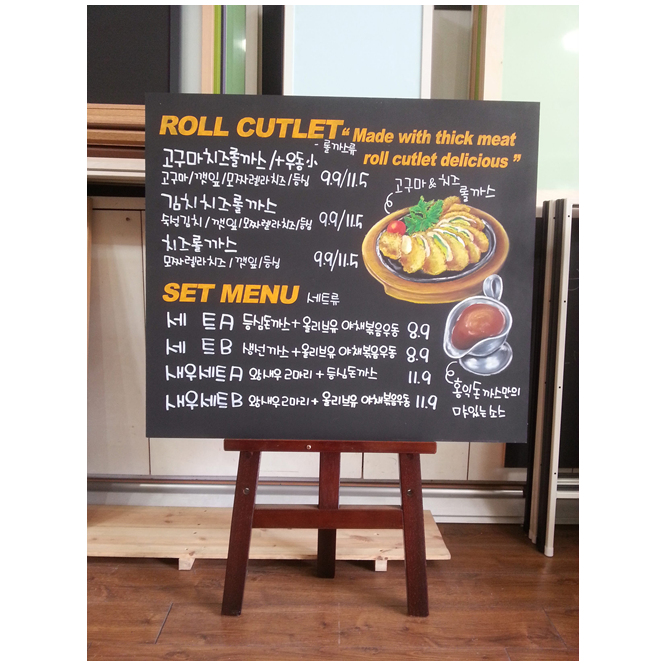 ROLL CUTLET “ Made with thick meat
roll cutlet delicious ”
- 롤까스류
고구마치즈롤까스/+우동小
고구마/깻잎/모짜렐라치즈/등심 9.9/11.5
김치치즈롤까스
숙성김치/깻잎/모짜렐라치즈/등심 9.9/11.5
치즈롤까스
모짜렐라치즈/깻잎/등심 9.9/11.5
고구마 & 치즈
롤까스
SET MENU 세트류
세 트A 등심돈까스+올리브유 야채볶음우동 8.9
세 트B 생선까스+올리브유 야채볶음우동 8.9
새우세트A 왕새우2마리+등심돈까스 11.9
새우세트B 왕새우2마리+올리브유 야채볶음우동 11.9
홍익돈까스만의
맛있는소스